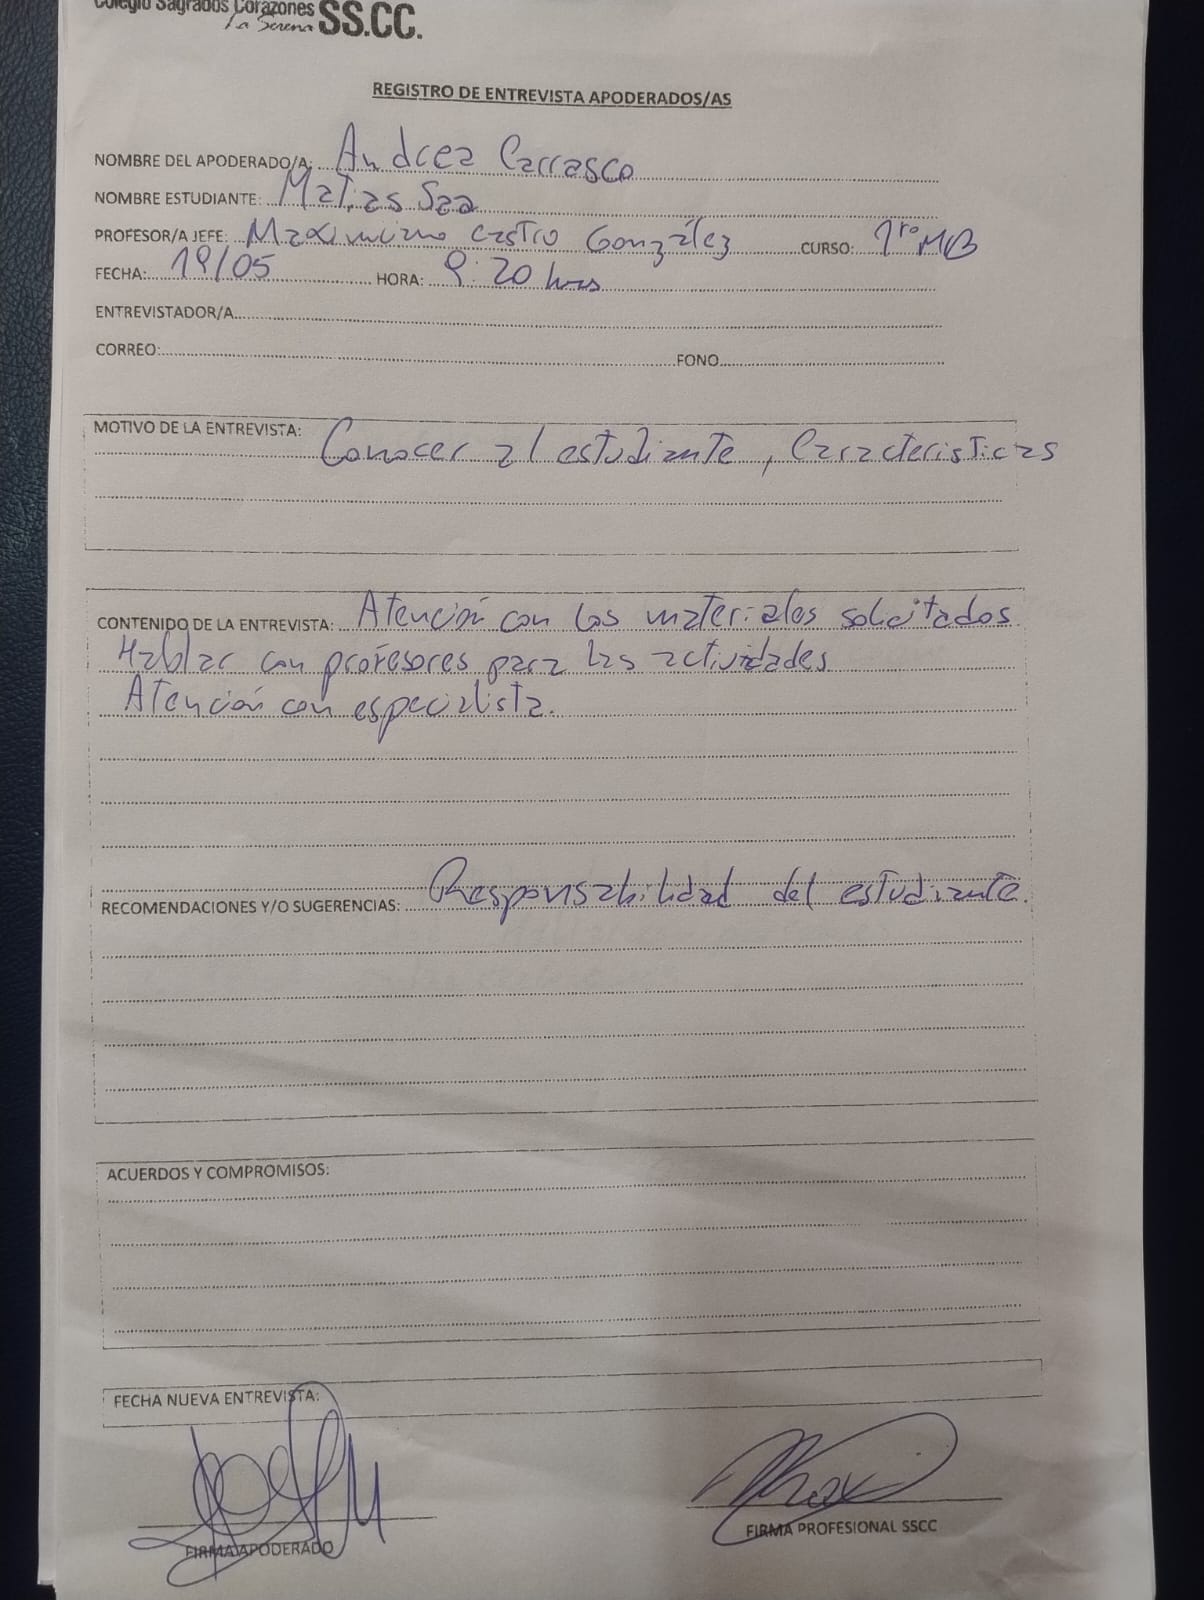 Colegio Sagrados Corazones SS.CC.
La Serena
REGISTRO DE ENTREVISTA APODERADOS/AS
NOMBRE DEL APODERADO/A: Andrea Carrasco
NOMBRE ESTUDIANTE: Matias Saa
PROFESOR/A JEFE: Maximiano Castro González CURSO: 1ro MB
FECHA: 19/05 HORA: 9:20 hrs
ENTREVISTADOR/A
CORREO: FONO
MOTIVO DE LA ENTREVISTA: Conocer al estudiante, Caracteristicas
CONTENIDO DE LA ENTREVISTA: Atención con los materiales solicitados.
Hablar con profesores para las actividades
Atención con especialista.
RECOMENDACIONES Y/O SUGERENCIAS: Responsabilidad del estudiante.
ACUERDOS Y COMPROMISOS:
FECHA NUEVA ENTREVISTA:
FIRMA APODERADO FIRMA PROFESIONAL SSCC